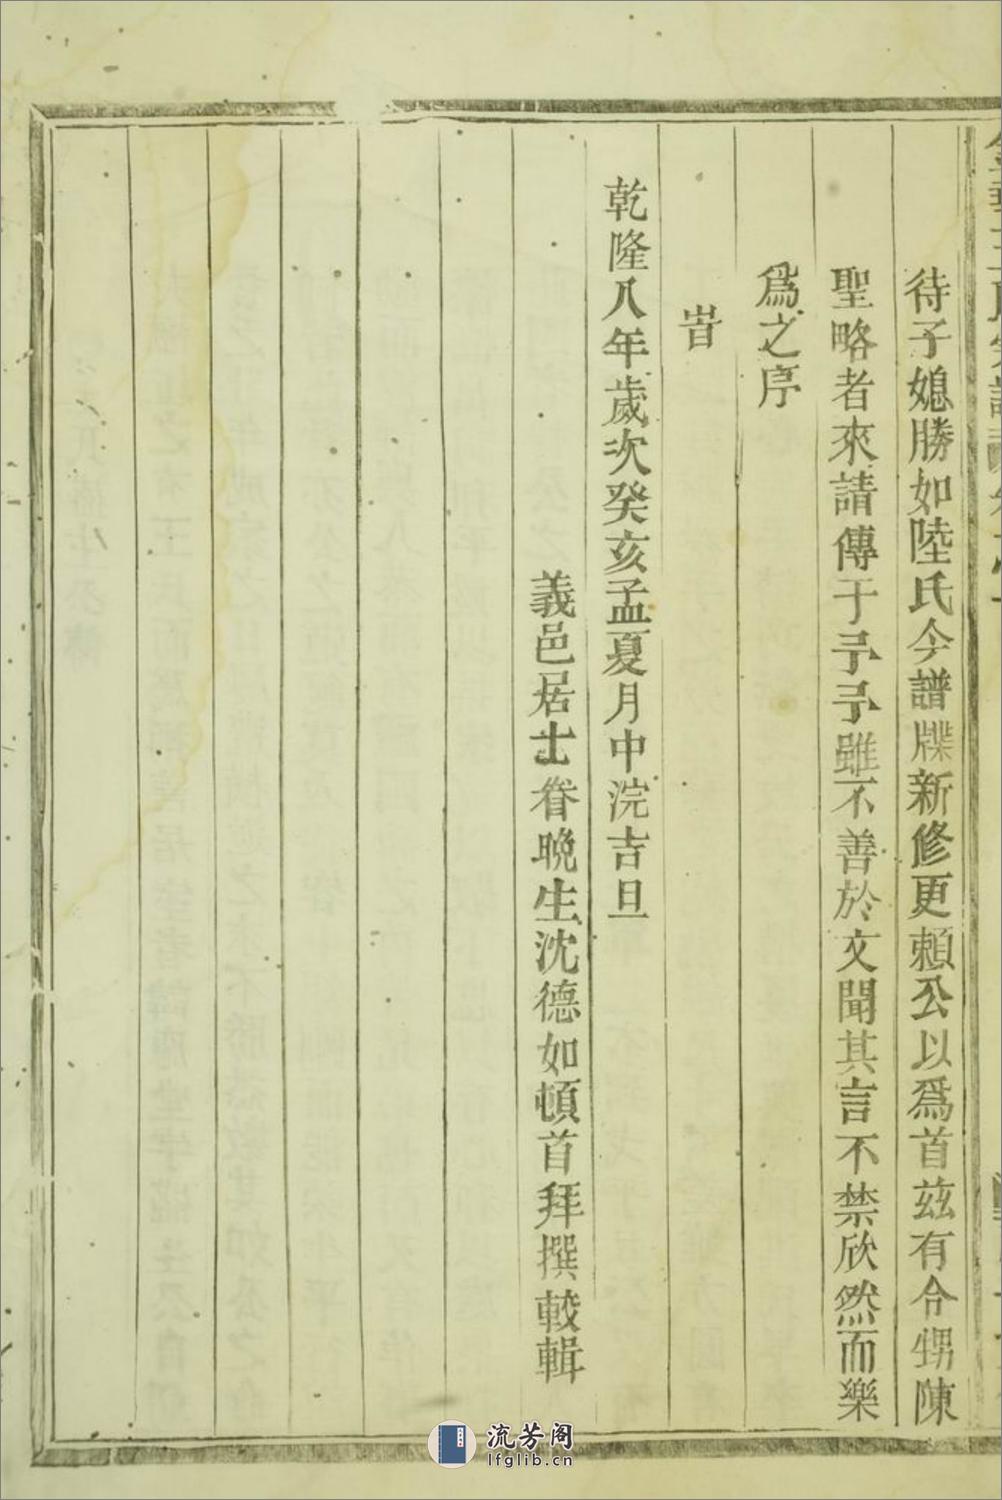 待子媳勝如陸氏今譜牒新修更賴公以爲首茲有令甥陳
聖略者來請傳于予予雖不善於文聞其言不禁欣然而樂
爲之序
旹
乾隆八年歲次癸亥孟夏月中浣吉旦
義邑居士眷晚生沈德如頓首拜撰較輯
流芳阁
lfglib.cn